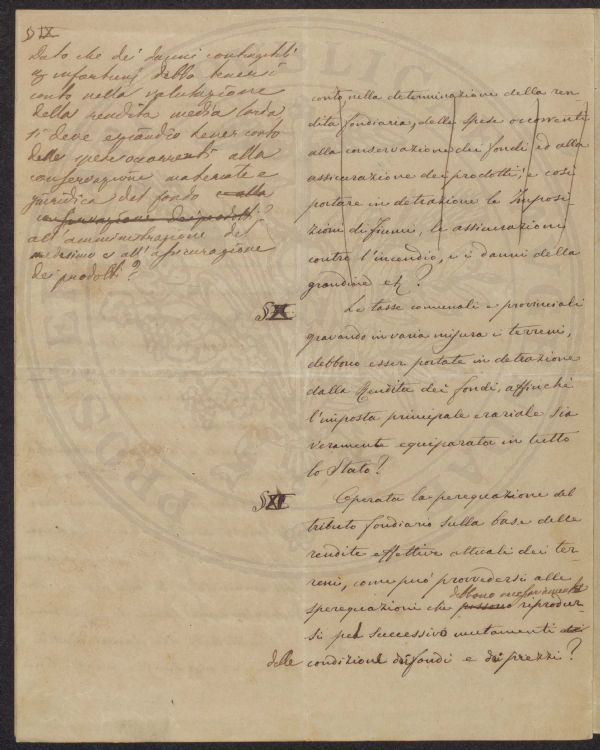 § IX
Dato che dei danni contingibili
e infortuni debba tenersi
conto nella valutazione
della rendita media lorda
si deve eziandio tener conto
delle spese occorrenti alla
conservazione materiale e
giuridica del fondo e alla
conservazione dei prodotti?
all'amministrazione del
medesimo e all'assicurazione
dei prodotti?
conto, nella determinazione della ren-
dita fondiaria, delle spese occorrenti
alla conservazione dei fondi ed alla
assicurazione dei prodotti, e così
portare in detrazione le Imposi-
zioni di fiumi, le assicurazioni
contro l'incendio, e i danni della
grandine etc?
§X
Le tasse comunali e provinciali
gravando in varia misura i terreni,
debbono esser portate in detrazione
dalla Rendita dei fondi, affinchè
l'imposta principale erariale sia
veramente equiparata in tutto
lo Stato?
§XI
Operata la perequazione del
tributo fondiario sulla base delle
rendite effettive attuali dei ter-
reni, come può provvedersi alle
debbono
sperequazioni che possono riprodur-
si pel successivo mutamenti dei
delle condizioni dei fondi e dei prezzi?